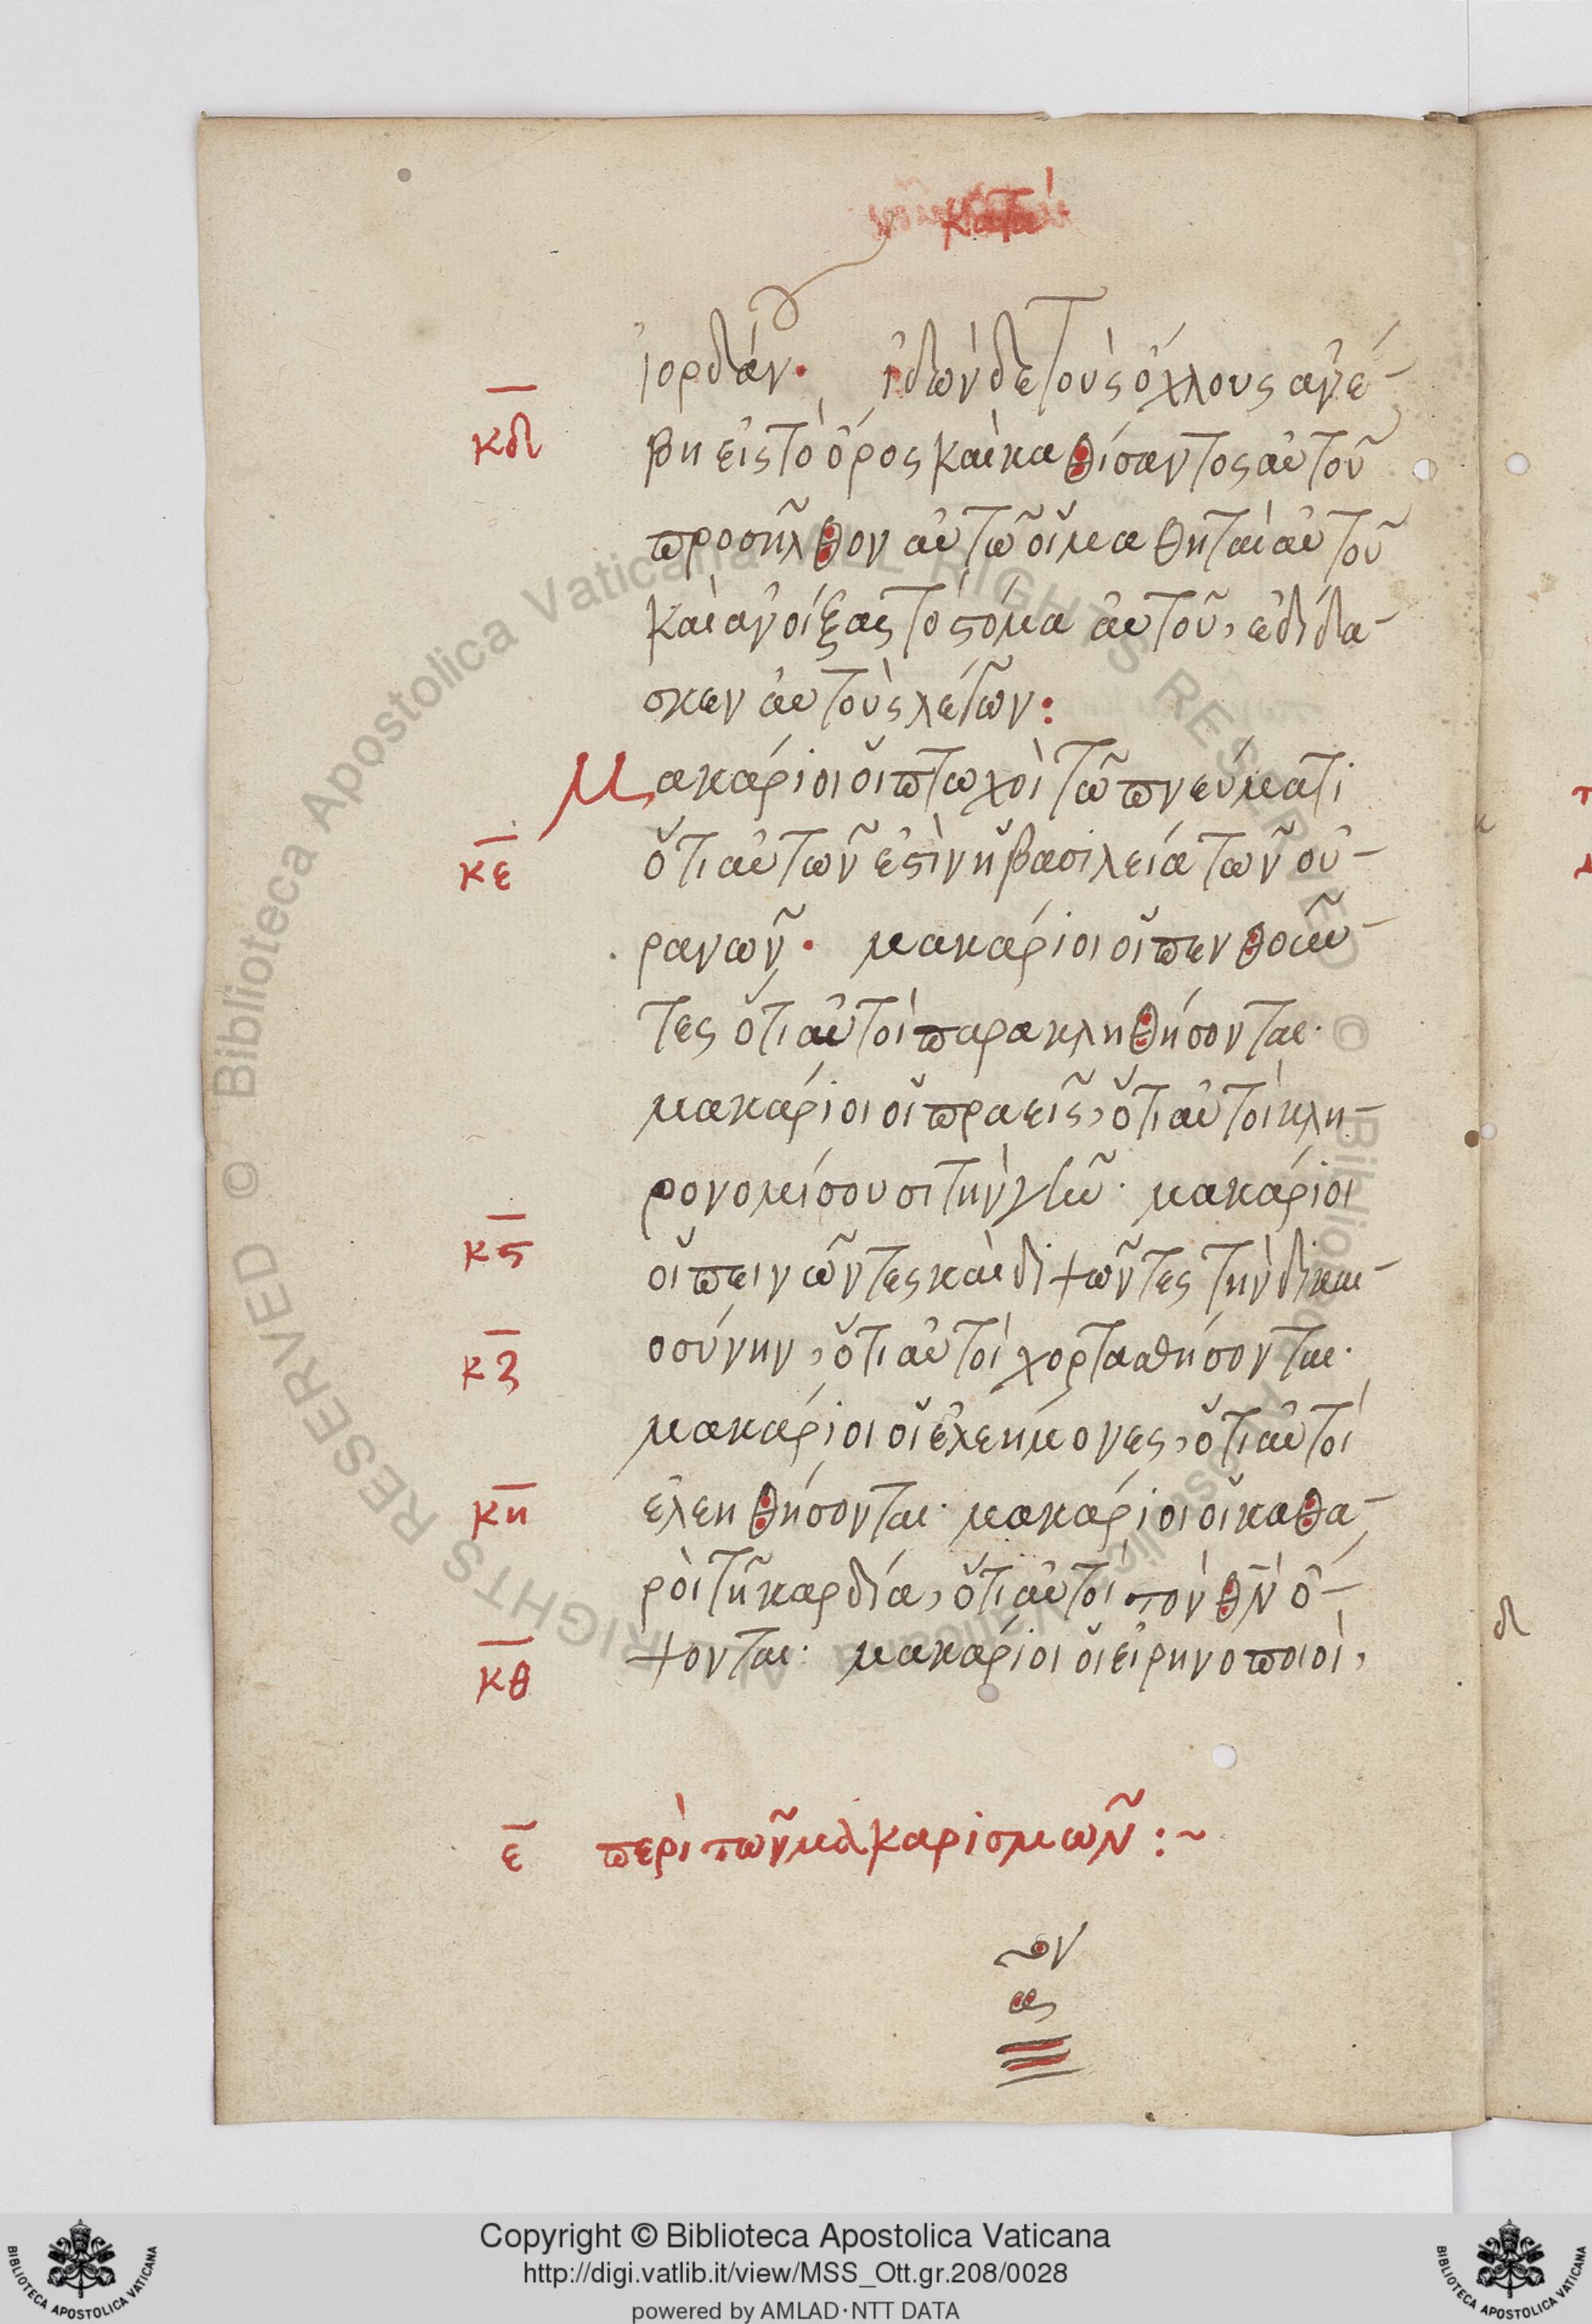 κατὰ
ἰορδάν. ἰδὼν δὲ τοὺς ὄχλους ἀνέ-
κδ
βη εἰς τὸ ὄρος καὶ καθίσαντος αὐτοῦ
προσῆλθον αὐτῶ οἱ μαθηταὶ αὐτοῦ
καὶ ἀνοίξας τὸ στόμα αὐτοῦ, ἐδίδα-
σκεν αὐτοὺς λέγων:
Μακάριοι οἱ πτωχοὶ τῶ πνεύματι
κε
ὅτι αὐτῶν ἐστὶν ἡ βασιλεία τῶν οὐ-
ρανῶν. μακάριοι οἱ πενθοῦν-
τες ὅτι αὐτοὶ παρακληθήσονται.
μακάριοι οἱ πραεῖς, ὅτι αὐτοὶ κλη-
ρονομίσουσι τὴν γῆν. μακάριοι
κς
οἱ πεινῶντες καὶ διψῶντες τὴν δικαι-
κζ
οσύνην, ὅτι αὐτοὶ χορτασθήσονται.
μακάριοι οἱ ἐλεήμονες, ὅτι αὐτοὶ
κη
ἐλεηθήσονται. μακάριοι οἱ καθα-
ροὶ τῆ καρδία, ὅτι αὐτοὶ τὸν θν ὄ-
ψονται. μακάριοι οἱ εἰρηνοποιοὶ,
κθ
ε περὶ τῶν μακαρισμῶν :~
Copyright © Biblioteca Apostolica Vaticana
http://digi.vatlib.it/view/MSS_Ott.gr.208/0028
powered by AMLAD·NTT DATA
BIBLIOTECA APOSTOLICA VATICANA
BIBLIOTECA APOSTOLICA VATICANA
Biblioteca Apostolica Vaticana ALL RIGHTS RESERVED ©
Biblioteca Apostolica Vaticana ALL RIGHTS RESERVED ©